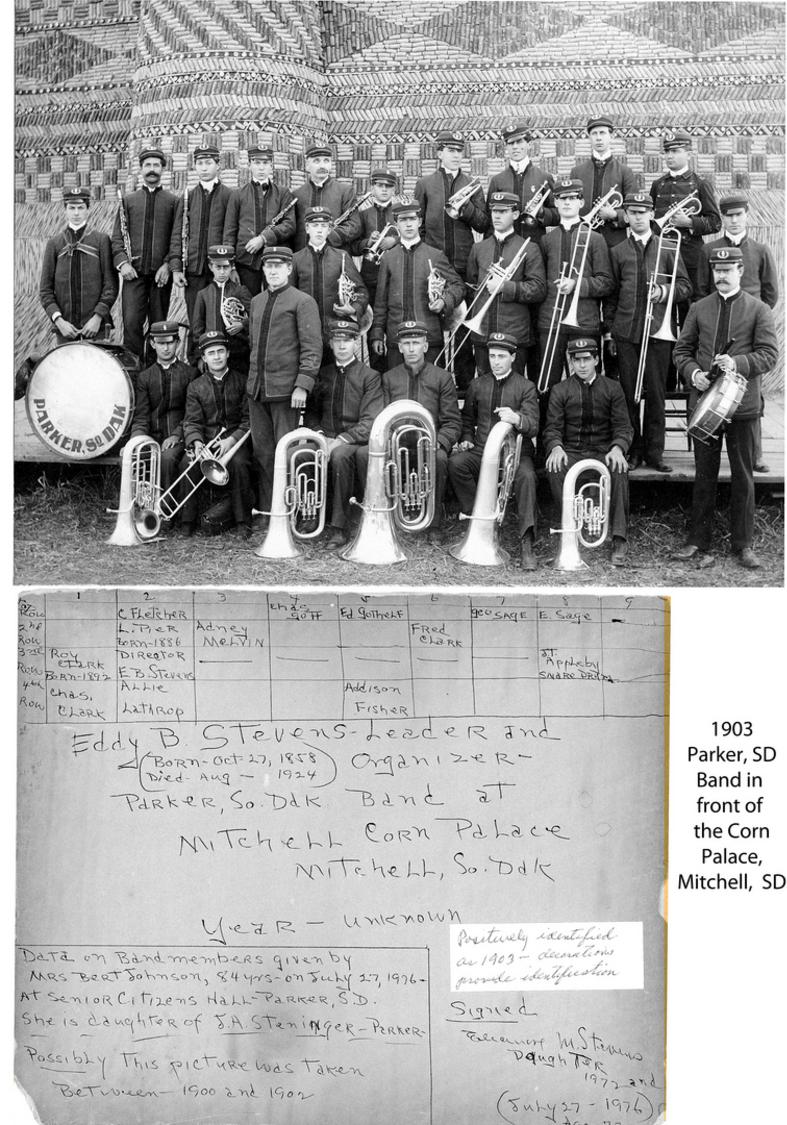 PARKER, SO. DAK
1 2 3 4 5 6 7 8 9
Row C Fletcher Chas Goff Ed Gothelf Geo Sage E. Sage
2nd Row L. Pier Born-1886 Adney Melvin Fred Clark
3rd Row Roy Clark Born-1892 Director E B. Stevens Appleby Snare Drum
4th Row Chas, Clark Allie Lathrop Addison Fisher
Eddy B. Stevens-Leader and
(Born-Oct-27, 1858 Organizer-
Died-Aug- 1924)
Parker, So. Dak. Band at
Mitchell Corn Palace
Mitchell, So. Dak
Year - unknown
Data on Bandmembers given by
Mrs Bert Johnson, 84 yrs-on July 27, 1976-
At Senior Citizens Hall-Parker, S.D.
She is daughter of J.A. Steninger-Parker-
Possibly This picture was taken
Between-1900 and 1902
Positively identified
as 1903 - decorations
provide identification
Signed
Eleanore M. Stevens
Daughter
1972 and
(July 27 - 1976)
1903
Parker, SD
Band in
front of
the Corn
Palace,
Mitchell, SD